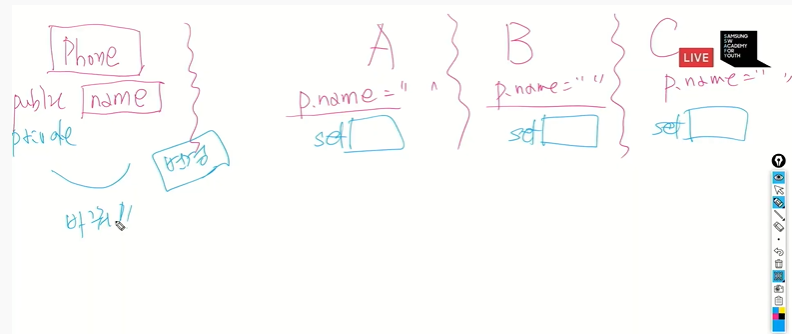 Phone
public name
private
변경
바꿔!!
A
p.name = " "
set
B
p.name = " "
set
C
p.name = " "
set
LIVE
SAMSUNG
SW
ACADEMY
FOR
YOUTH